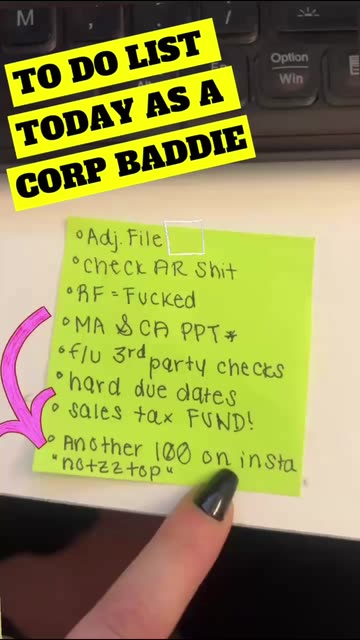 M
,
.
/
Option
Win
TO DO LIST
TODAY AS A
CORP BADDIE
Adj. File
check AR shit
RF = Fucked
MA & CA PPT*
f/u 3rd party checks
hard due dates
sales tax FUND!
Another 100 on insta
"notzztop"